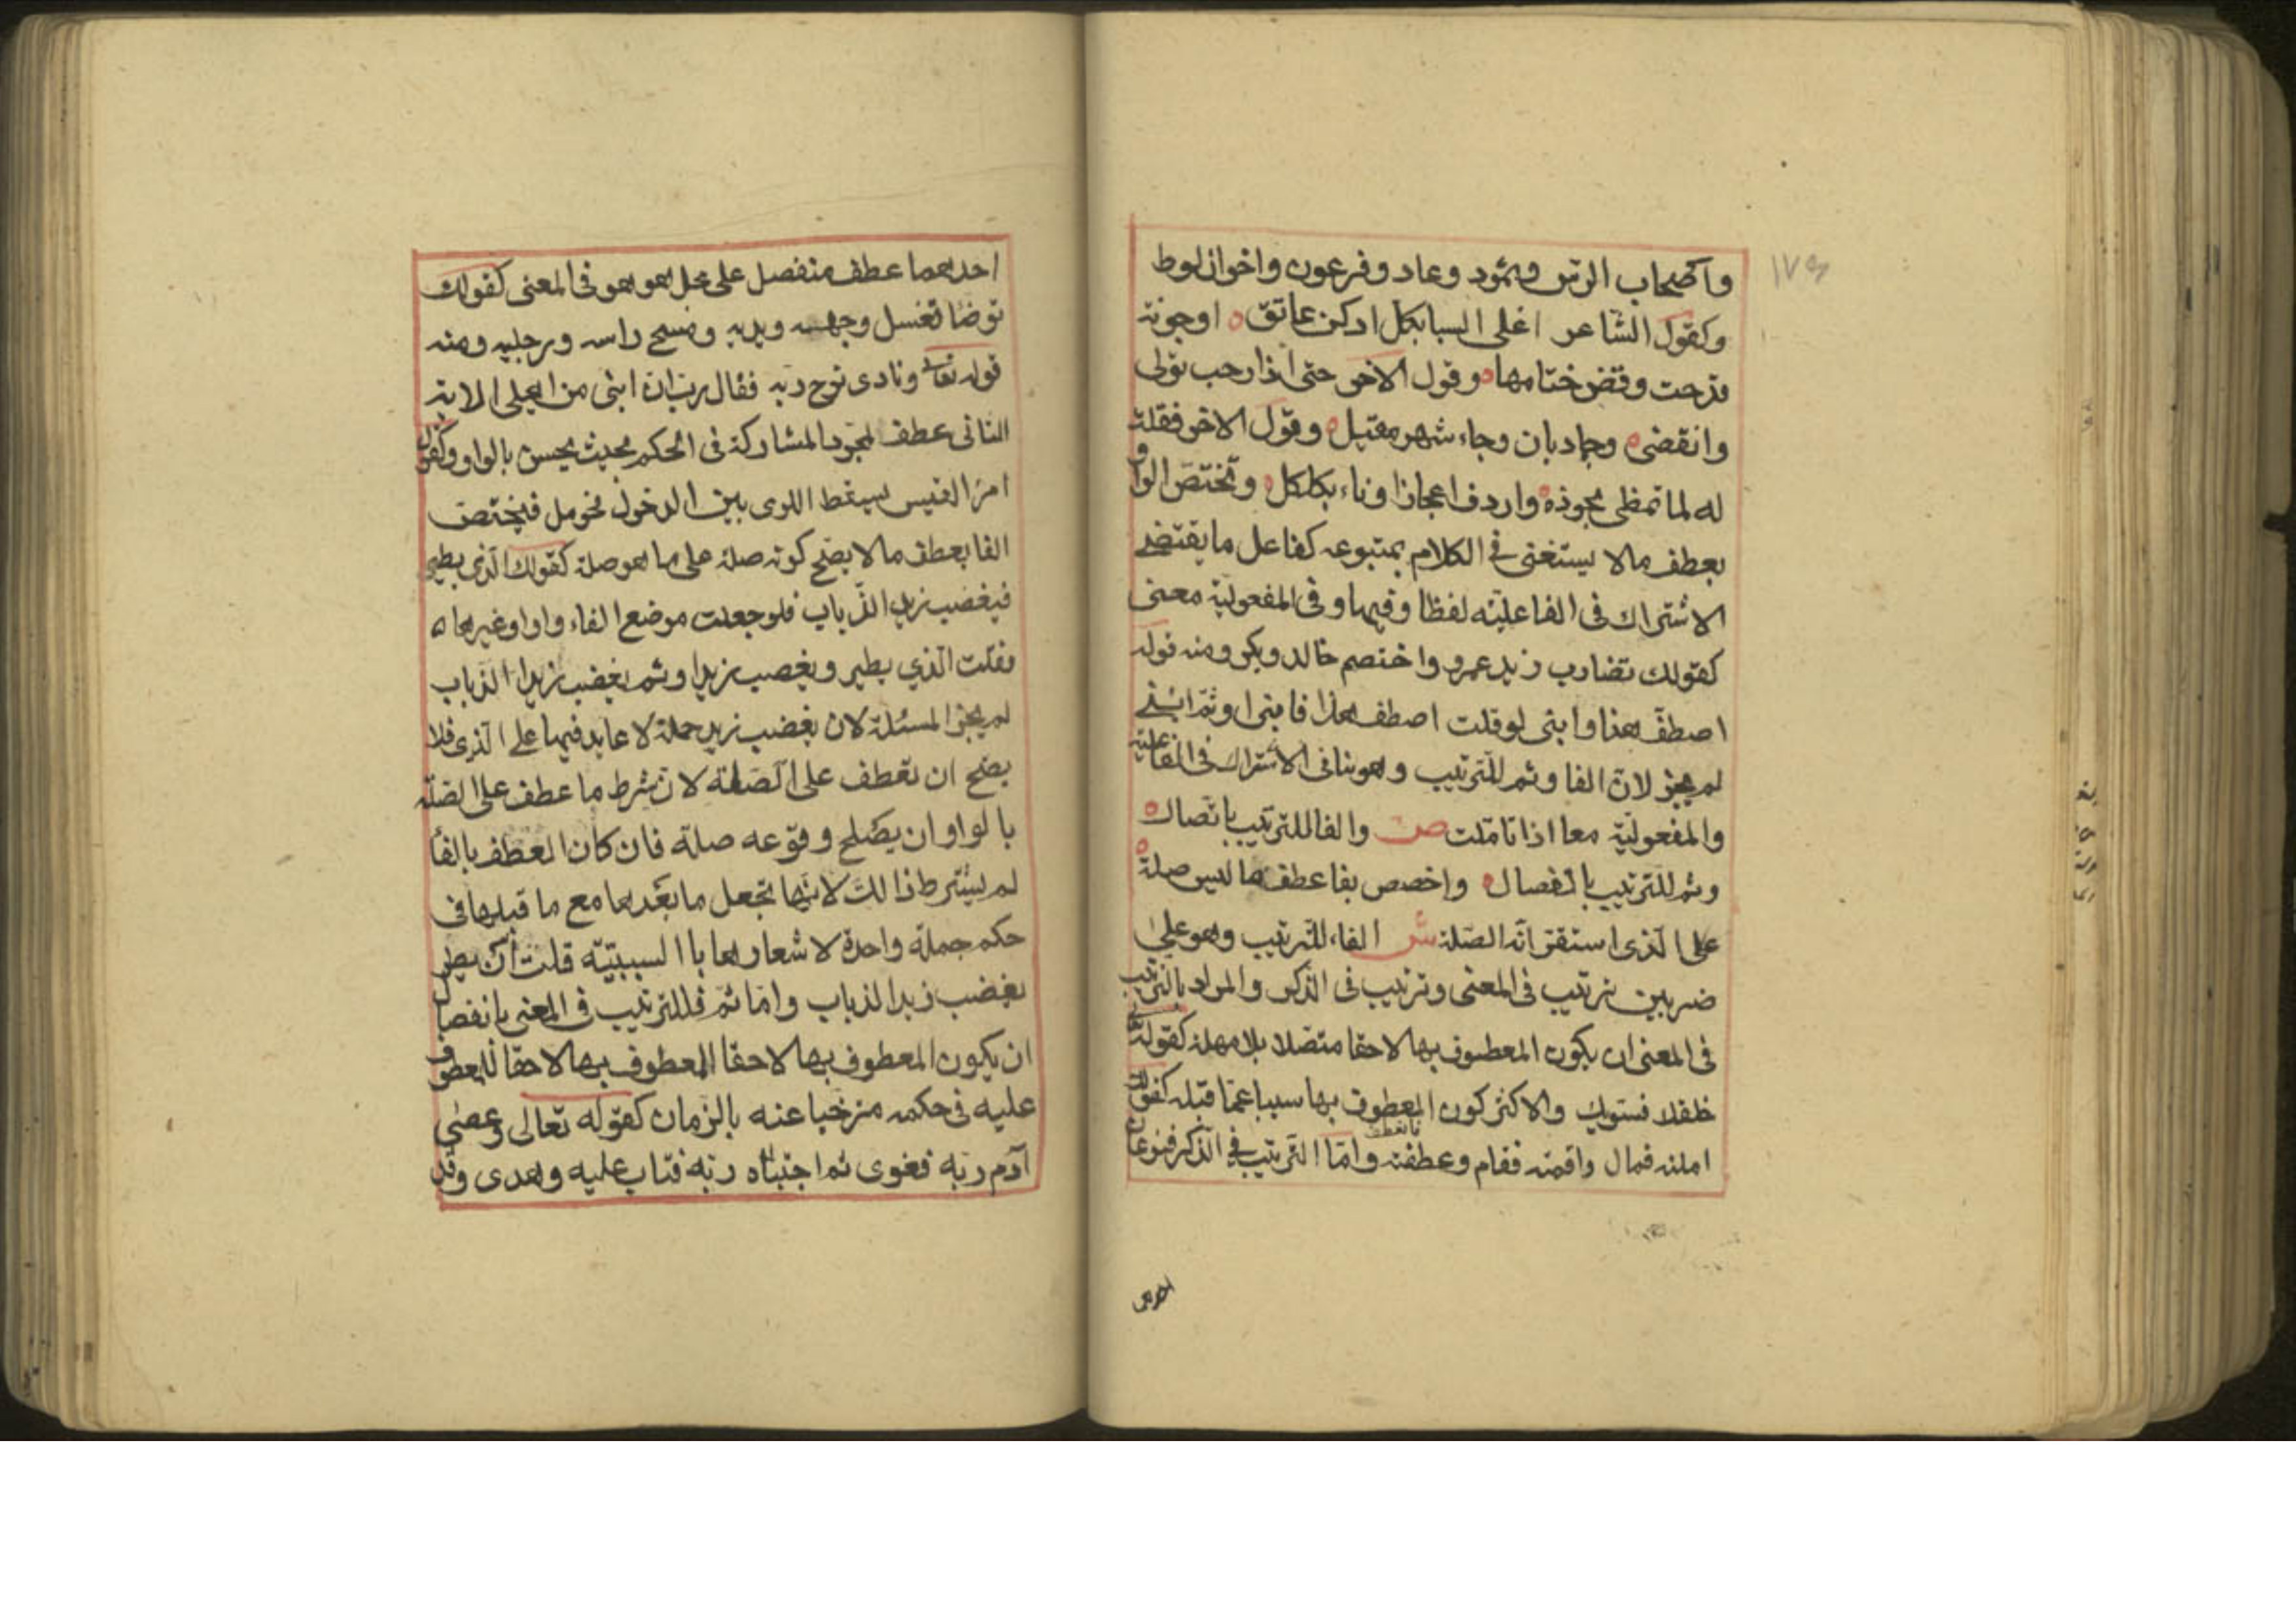 ١٧٤
واصحاب الرس وثمود وعاد وفرعون واخوان لوط
وكقول الشاعر اغلى السبا بكل ادكن عاتق ه اوجونة
قدحت وفض ختامها ه وقول الاخر حتى اذا رجب تولى
وانقضى ه وجمادبان وجاء شهر مقبل ه وقول الاخر فقلت
له لما تمطى بجوذه ه واردف اعجازا وناء بكلكل ه وتختص الواو
بعطف مالا يستغنى فى الكلام بمتبوعه كفاعل ما يقتضى
الاشتراك فى الفاعلية لفظا وفيها وفى المفعولية معنى
كقولك تضارب زيد عمرو واختصم خالد وبكر ومنه قوله
اصطف هذا وابنى لو قلت اصطف هذا فابنى او ثم ابنى
لم يجز لان الفا وثم للترتيب وهو ينافى الاشتراك فى الفاعلية
والمفعولية معا اذا تاملت ص والفا للترتيب باتصال ه
وثم للترتيب بانفصال ه واخصص بفا عطف ما ليس صلة ه
على الذى استقر انه الصلة ش الفاء للترتيب وهو على
ضربين ترتيب فى المعنى وترتيب فى الذكر والمراد بالترتيب
فى المعنى ان يكون المعطوف بها لاحقا متصلا بلا مهلة كقوله تعا
خلقك فسويك والاكثر كون المعطوف بها سببا عما قبله كقولك
املته فمال واقمته فقام وعطفته فانعطف واما الترتيب فى الذكر فنوعان
احدهما عطف منفصل على مجمل هو هو فى المعنى كقولك
توضا تغسل وجهه ويديه ومسح راسه ورجليه ومنه
قوله تعا ونادى نوح ربه فقال رب ان ابنى من اهلى الاية
الثانى عطف لمجرد المشاركة فى الحكم بحيث يحسن بالواو وكقول
امرء القيس بسقط اللوى بين الدخول فحومل فيختص
الفا بعطف مالا يصح كونه صلة على ما هو صلة كقولك الذى يطير
فيغضب زيد الذباب فلو جعلت موضع الفاء واوا او غيرها ه
فقلت الذي يطير ويغضب زيدا وثم يغضب زيدا الذباب
لم يجز المسئلة لان يغضب زيد جملة لا عايد فيها على الذى فلا
يصح ان تعطف على الصلة لان شرط ما عطف على الصلة
بالواو ان يصلح وقوعه صلة فان كان العطف بالفا
لم يشترط ذالك لانها تجعل ما بعدها مع ما قبلها فى
حكم جملة واحدة لا شعارها باالسببية قلت ان يطر
يغضب زيدا الذباب واما ثم فللترتيب فى المعنى بانفصال
ان يكون المعطوف بها لاحقا المعطوف بها لاحقا للمعطوف
عليه فى حكمه متراخيا عنه بالزمان كقوله تعالى وعصى
آدم ربه فغوى ثم اجتباه ربه فتاب عليه وهدى وقد